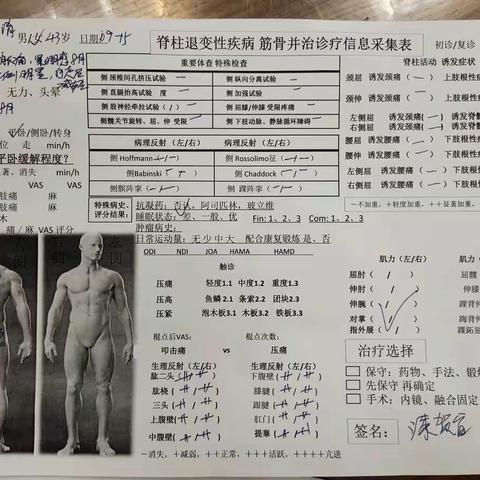 男 43岁 日期 09-15
脊柱退变性疾病 筋骨并治诊疗信息采集表 初诊/复诊
无力、头晕
卧/侧卧/转身
走 位 min/h
平卧缓解程度?
著、消失 min/h
VAS VAS
肢痛 / 麻
肢痛 / 麻
木
痛 / 麻 VAS 评分
右侧 左侧
重要体查 特殊检查
侧 颈椎间孔挤压试验 侧 纵向分离试验
侧 直腿抬高试验 度 侧 加强试验
侧 股神经牵拉试验(/) 侧 屈膝/伸膝 受限疼痛
侧髋关节旋转、屈、伸 受限 侧 下肢动脉、静脉循环障碍
病理反射 (左/右) 病理反射 (左/右)
侧 Hoffmann 侧 Rossolimo征
侧 Babinski 侧 Chaddock
侧 髌阵挛 侧 踝阵挛
特殊病史、评分结果:
抗凝药: 否认, 阿司匹林, 玻立维
睡眠状态: 差、一般、优 Fin: 1、2、3 Com: 1、2、3
肿瘤病史:
日常运动量: 无 少 中 大 配合康复锻炼 是、否
ODI NDI JOA HAMA HAMD
触诊
压痛 轻度1.1 中度1.2 重度1.3
压高 鱼鳞2.1 条索2.2 团块2.3
压紧 泡木板3.1 木板3.2 铁板3.3
棍点后VAS: 棍点次数:
叩击痛 vs 压痛
生理反射 (左/右) 生理反射 (左/右)
肱二头 下腹壁
肱桡 膝腱
三头 跟腱
上腹壁 肛门
中腹壁 提睾
-消失,+减弱,++正常,+++活跃,++++亢进
脊柱活动 诱发症状
颈屈 诱发颈痛 上肢根性
颈伸 诱发颈痛 上肢根性
左侧屈 诱发颈痛 诱发脊
右侧屈 诱发颈痛 诱发脊
腰屈 诱发腰痛 下肢根性
腰伸 诱发腰痛 下肢根性
左侧屈 诱发腰痛 下肢根性
右侧屈 诱发腰痛 下肢根性
-不加重,+轻度加重,++显著加重,
肌力 (左/右) 肌力 (左
屈肘 屈髋
伸肘 伸膝
伸腕 踝背伸
对掌 踇背伸
指外展 踝跖屈
治疗选择
保守: 药物、手法、锻
先保守 再确定
手术: 内镜、融合固定
签名: